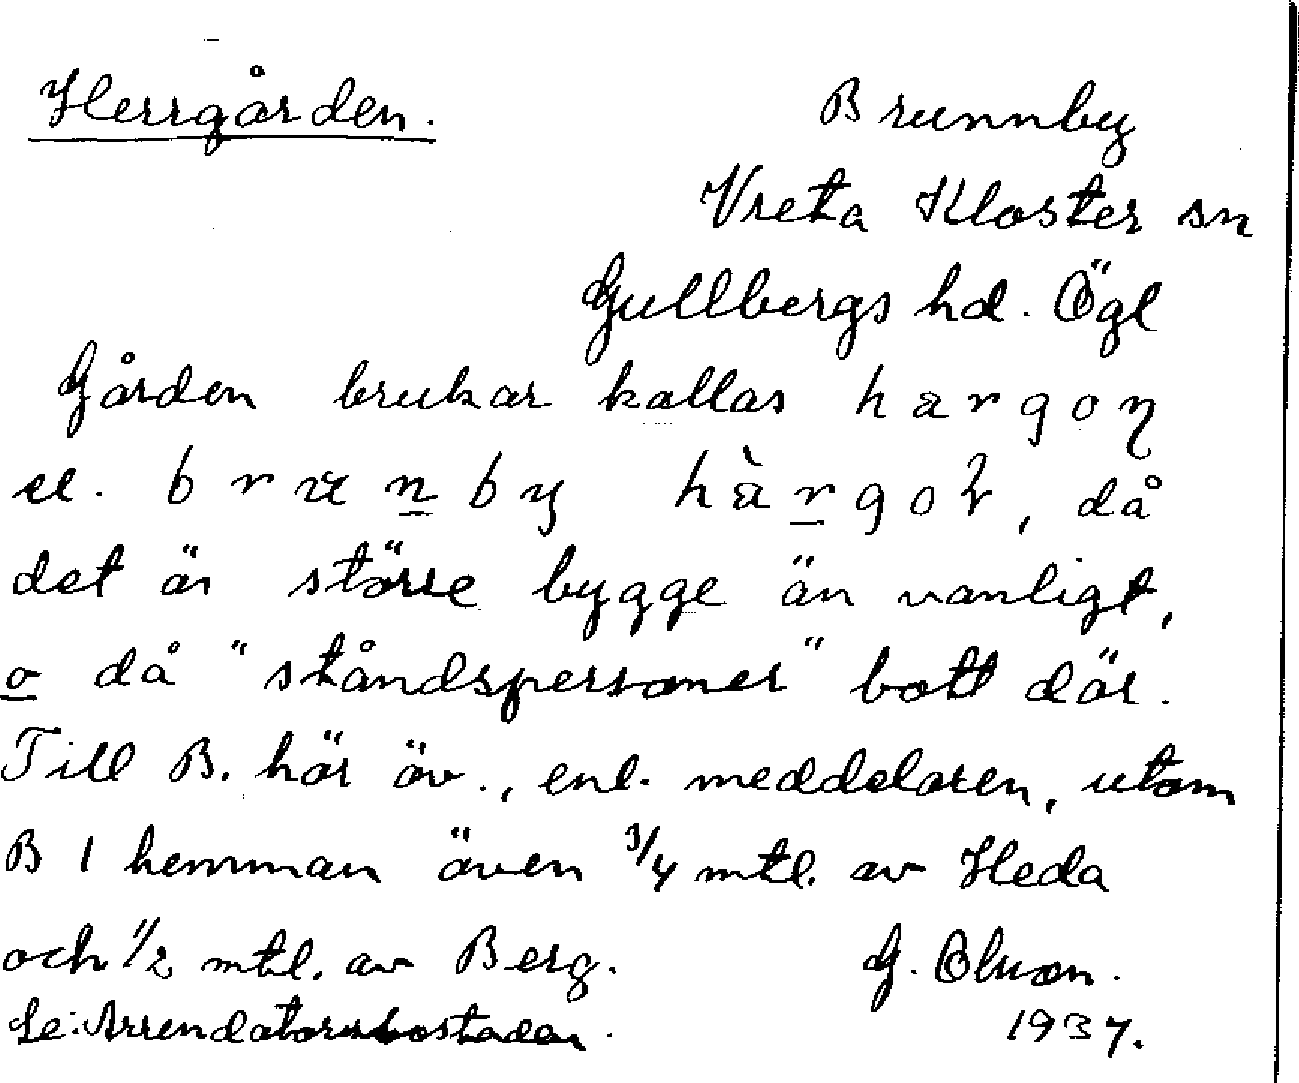 Herrgården.
Brunnby
Vreta Kloster sn
Gullbergs hd. Ögl
Gården brukar kallas
el. då
det är större bygge än vanligt,
o då "ståndspersoner" bott där.
Till B. hör äv., enl. meddelaren, utom
B 1 hemman även 3/4 mtl. av Heda
och 1/2 mtl. av Berg.
G. Olsson.
Se: Arrendatorsbostaden.
1937.